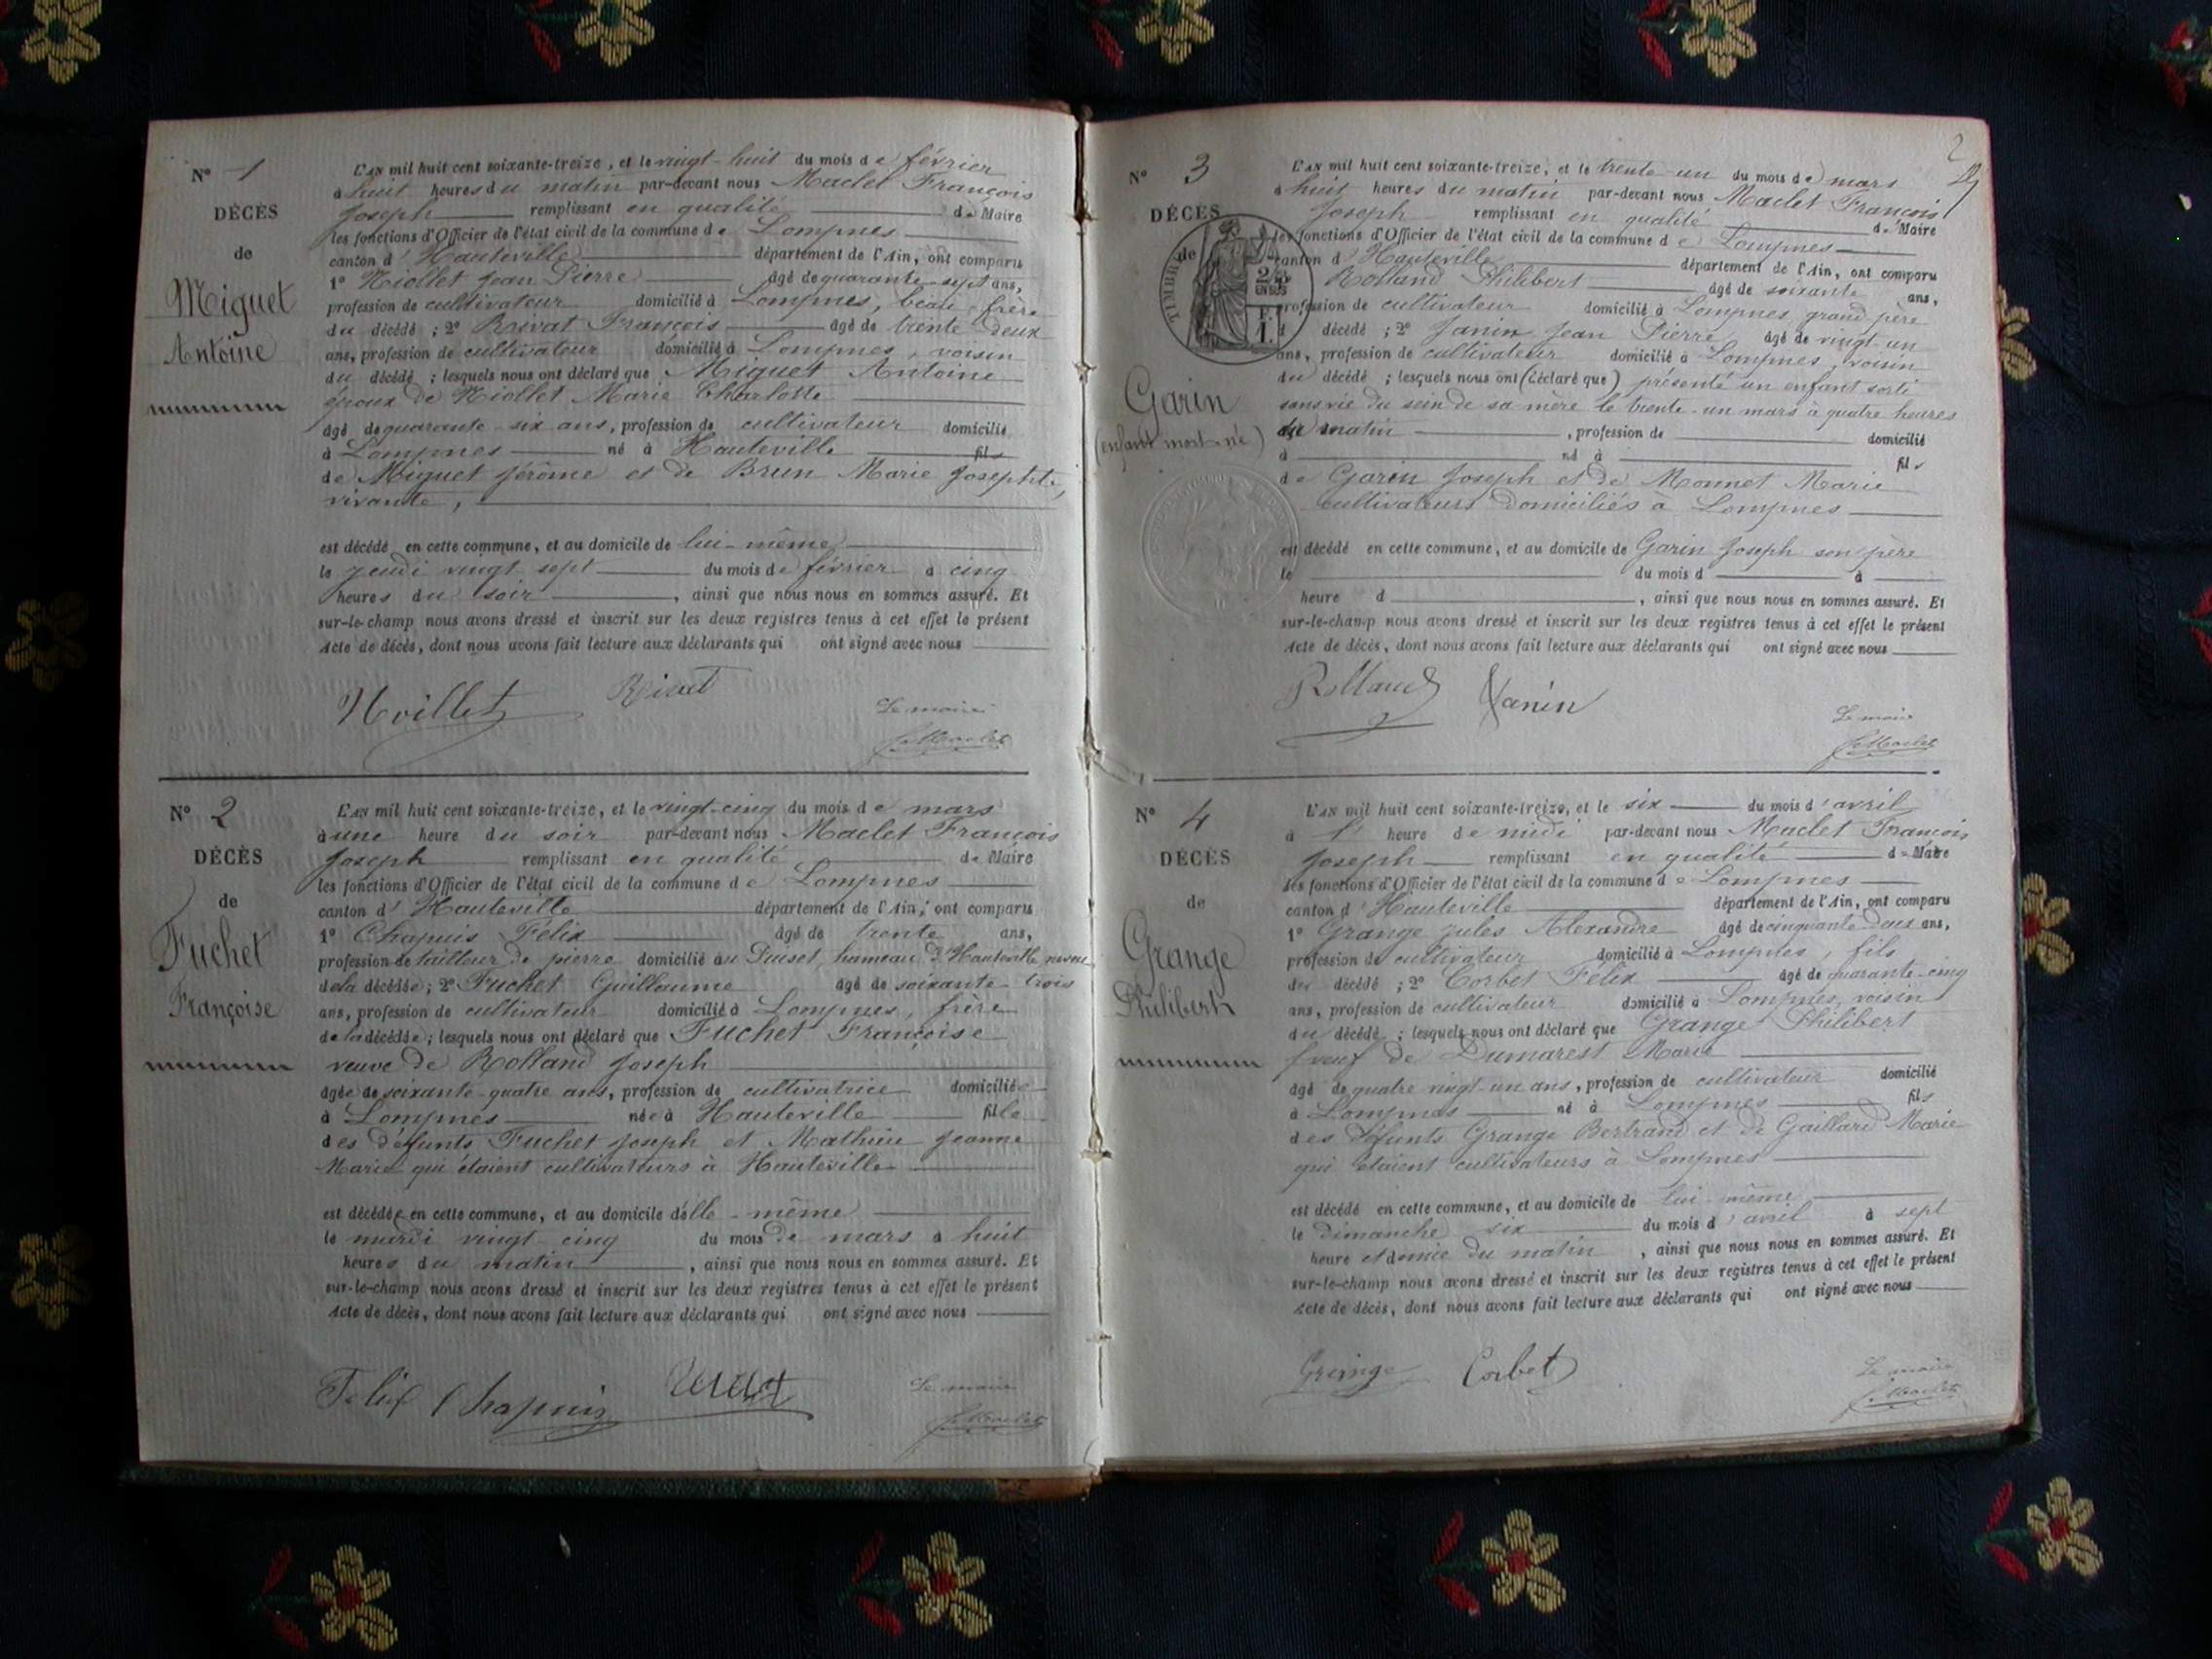 N° 1
DÉCÈS
de
Miguet
Antoine
L'AN mil huit cent soixante-treize, et le vingt-huit du mois de février
à huit heures du matin par-devant nous Maclet François
Joseph remplissant en qualité de Maire
les fonctions d'Officier de l'état civil de la commune de Lompnes
canton d'Hauteville département de l'Ain, ont comparu
1° Niollet Jean Pierre âgé de quarante-sept ans,
profession de cultivateur domicilié à Lompnes, beau-frère
du décédé ; 2° Rivat François âgé de trente-deux
ans, profession de cultivateur domicilié à Lompnes, voisin
du décédé ; lesquels nous ont déclaré que Miguet Antoine
époux de Niollet Marie Charlotte
âgé de quarante-six ans, profession de cultivateur domicilié
à Lompnes né à Hauteville fils
de Miguet Jérôme et de Brun Marie Josephte,
vivante,
est décédé en cette commune, et au domicile de lui-même
le jeudi vingt sept du mois de février à cinq
heures du soir, ainsi que nous nous en sommes assuré. Et
sur-le-champ nous avons dressé et inscrit sur les deux registres tenus à cet effet le présent
Acte de décès, dont nous avons fait lecture aux déclarants qui ont signé avec nous
Rivat
Le maire
Maclet
N° 2
DÉCÈS
de
Fuchet
Françoise
L'AN mil huit cent soixante-treize, et le vingt-cinq du mois de mars
à une heure du soir par-devant nous Maclet François
Joseph remplissant en qualité de Maire
les fonctions d'Officier de l'état civil de la commune de Lompnes
canton d'Hauteville département de l'Ain, ont comparu
1° Chapuis Félix âgé de trente ans,
profession de tailleur de pierre domicilié au hameau d'Hauteville neveu
de la décédée ; 2° Fuchet Guillaume âgé de soixante-trois
ans, profession de cultivateur domicilié à Lompnes, frère
de la décédée ; lesquels nous ont déclaré que Fuchet Françoise
veuve de Rolland Joseph
âgée de soixante-quatre ans, profession de cultivatrice domiciliée
à Lompnes née à Hauteville fille
des défunts Fuchet Joseph et Mathieu Jeanne
Marie qui étaient cultivateurs à Hauteville
est décédée en cette commune, et au domicile d'elle-même
le mardi vingt cinq du mois de mars à huit
heures du matin, ainsi que nous nous en sommes assuré. Et
sur-le-champ nous avons dressé et inscrit sur les deux registres tenus à cet effet le présent
Acte de décès, dont nous avons fait lecture aux déclarants qui ont signé avec nous
Felix Chapuis
Le maire
Maclet
2
N° 3
DÉCÈS
de
TIMBRE
Garin
(enfant mort-né)
L'AN mil huit cent soixante-treize, et le trente-un du mois de mars
à huit heures du matin par-devant nous Maclet François
Joseph remplissant en qualité de Maire
les fonctions d'Officier de l'état civil de la commune de Lompnes
canton d'Hauteville département de l'Ain, ont comparu
Rolland Philibert âgé de soixante ans,
profession de cultivateur domicilié à Lompnes grand père
décédé ; 2° Janin Jean Pierre âgé de vingt-un
ans, profession de cultivateur domicilié à Lompnes, voisin
du décédé ; lesquels nous ont (déclaré que) présenté un enfant sorti
sans vie du sein de sa mère le trente-un mars à quatre heures
du matin, profession de domicilié
à né à fils
de Garin Joseph et de Monnet Marie
cultivateurs domiciliés à Lompnes
est décédé en cette commune, et au domicile de Garin Joseph son père
le du mois d à
heure d, ainsi que nous nous en sommes assuré. Et
sur-le-champ nous avons dressé et inscrit sur les deux registres tenus à cet effet le présent
Acte de décès, dont nous avons fait lecture aux déclarants qui ont signé avec nous
Rolland Janin
Le maire
Maclet
N° 4
DÉCÈS
de
Grange
Philibert
L'AN mil huit cent soixante-treize, et le six du mois d'avril
à l' heure de midi par-devant nous Maclet François
Joseph remplissant en qualité de Maire
les fonctions d'Officier de l'état civil de la commune de Lompnes
canton d'Hauteville département de l'Ain, ont comparu
1° Grange Jules Alexandre âgé de cinquante-deux ans,
profession de cultivateur domicilié à Lompnes, fils
du décédé ; 2° Corbet Félix âgé de quarante-cinq
ans, profession de cultivateur domicilié à Lompnes, voisin
du décédé ; lesquels nous ont déclaré que Grange Philibert
veuf de Dumarest Marie
âgé de quatre vingt-un ans, profession de cultivateur domicilié
à Lompnes né à Lompnes fils
des défunts Grange Bertrand et de Gaillard Marie
qui étaient cultivateurs à Lompnes
est décédé en cette commune, et au domicile de lui-même
le dimanche six du mois d'avril à sept
heure et demie du matin, ainsi que nous nous en sommes assuré. Et
sur-le-champ nous avons dressé et inscrit sur les deux registres tenus à cet effet le présent
Acte de décès, dont nous avons fait lecture aux déclarants qui ont signé avec nous
Grange Corbet
Le maire
Maclet